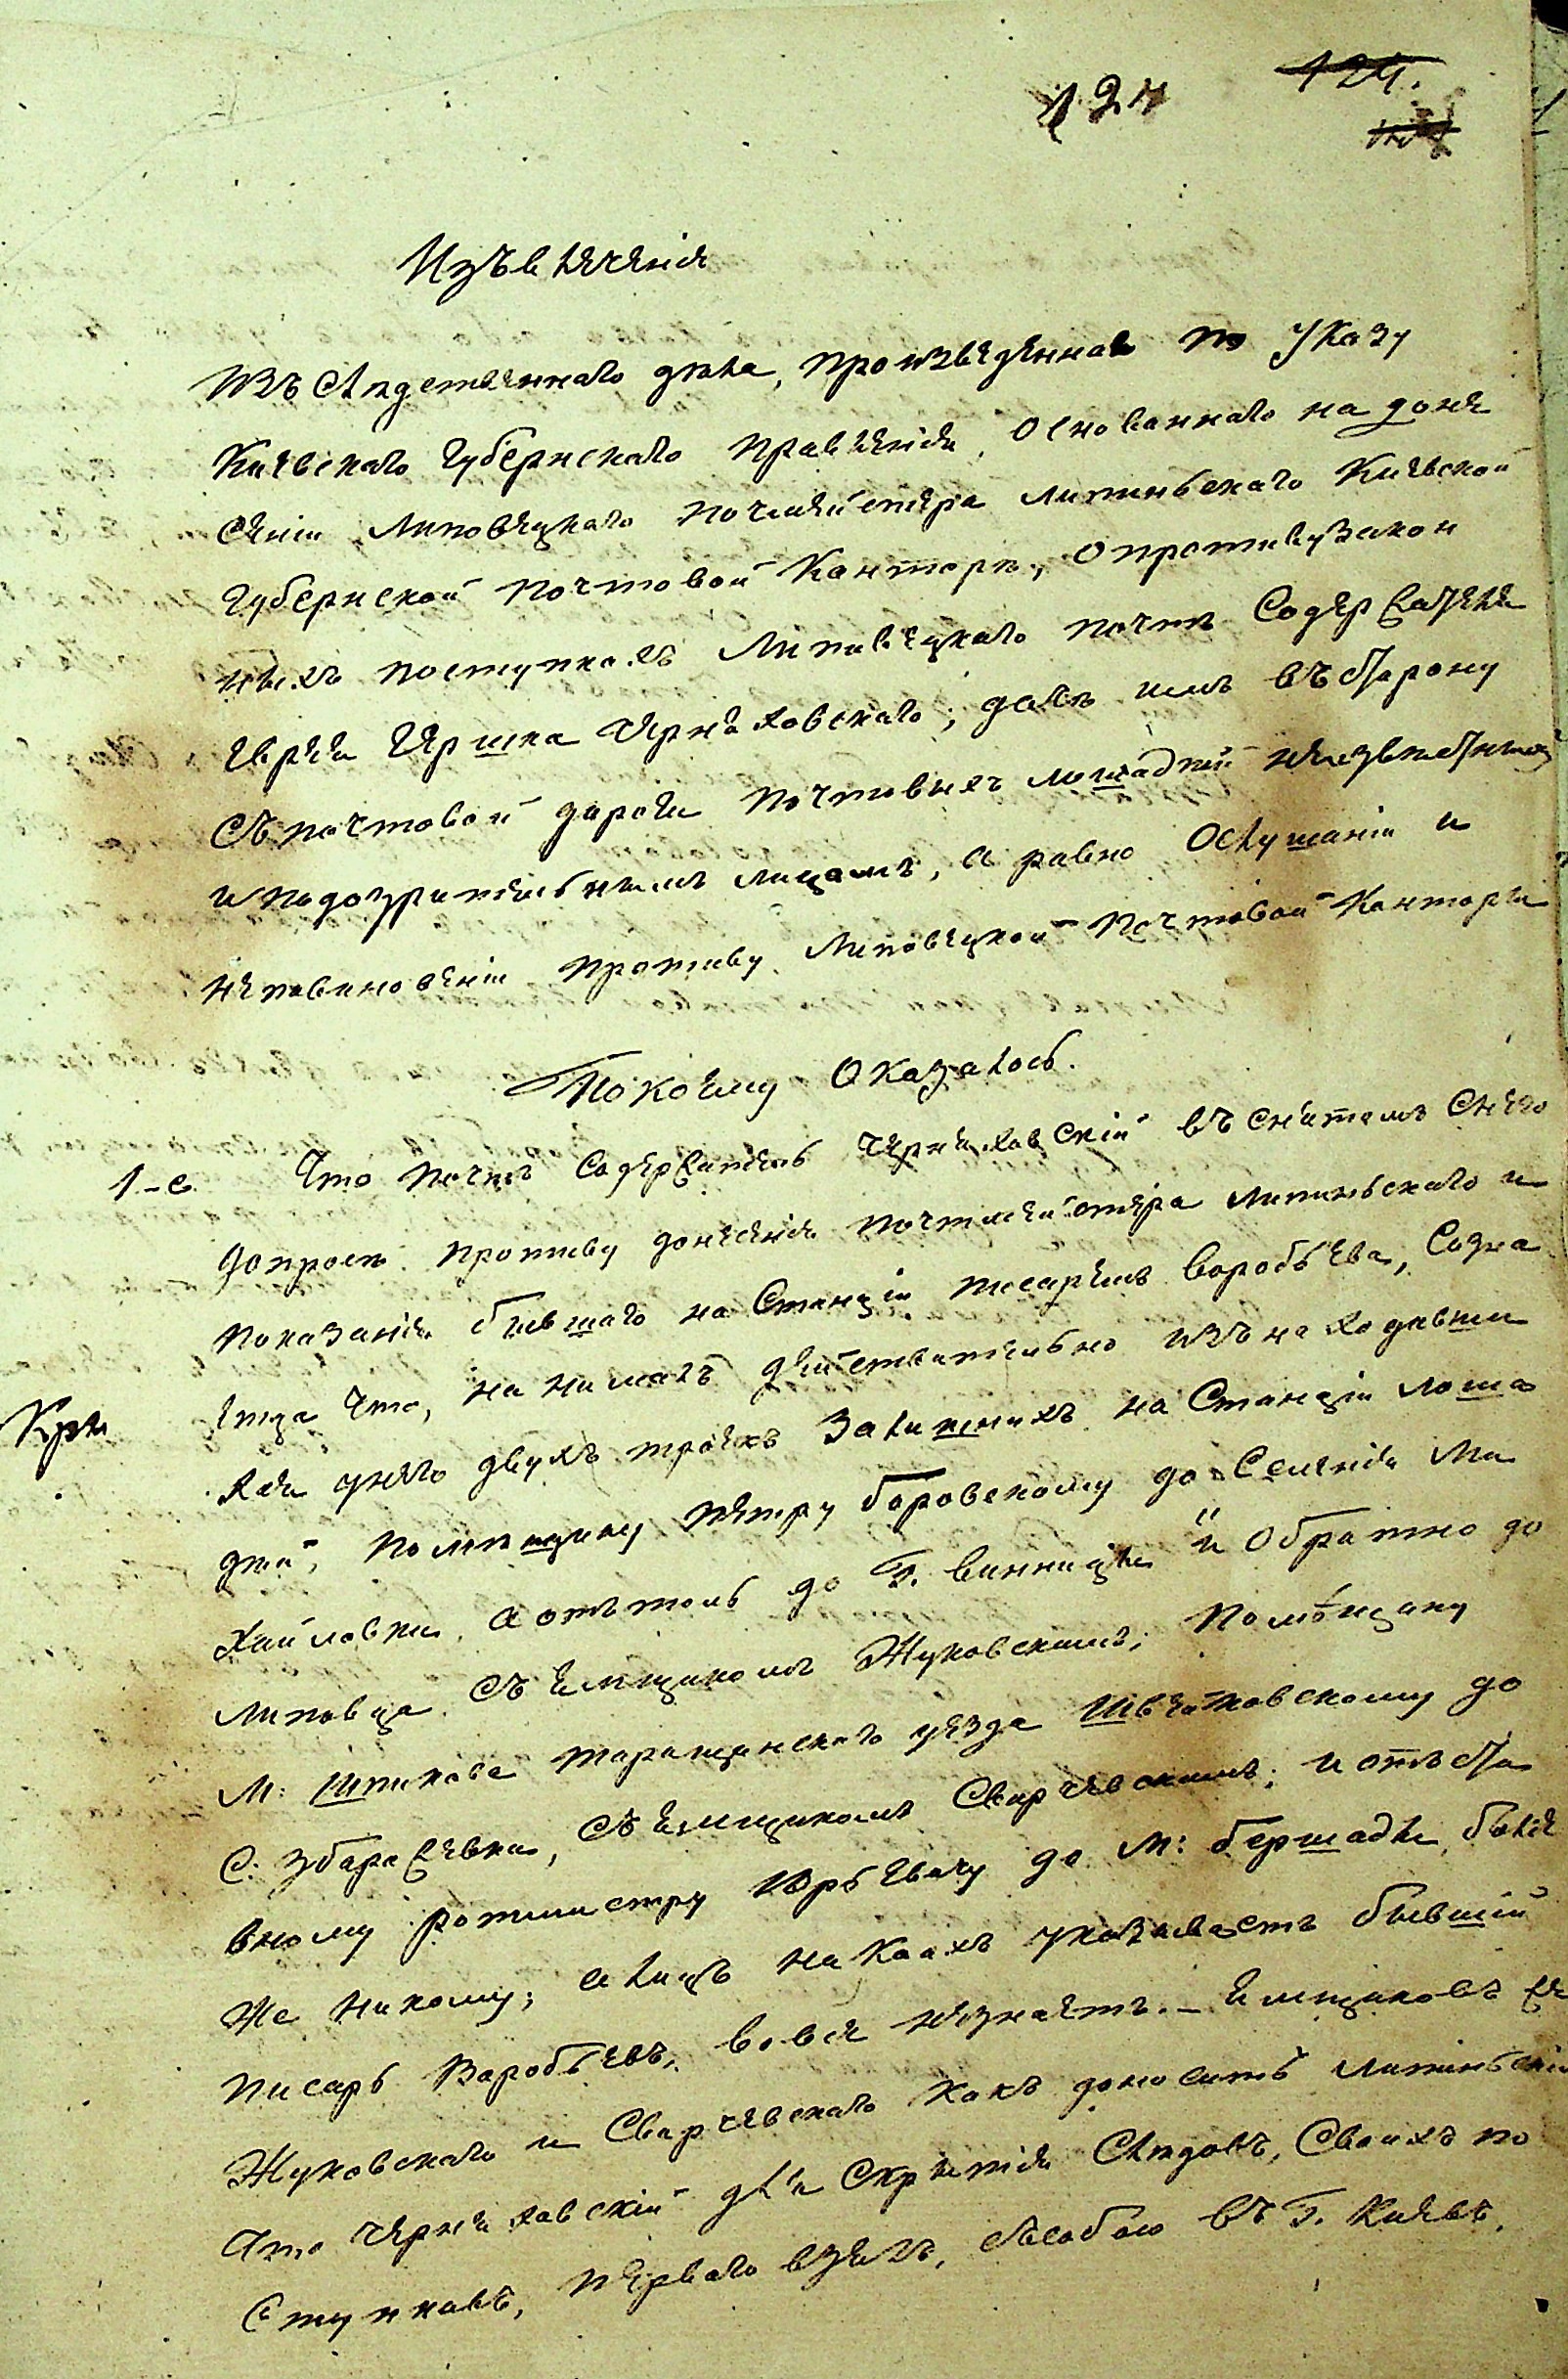 124 124.
Изъвлечения
изъ следственнаго дѣла, произведеннаго по указу
Киевскаго Губернскаго Правления, основаннаго на доне
сении Липовецкаго почтмейстера Липинскаго Киевской
Губернской почтовой Канторѣ, о противузакон
ныхъ поступкахъ Липовецкаго почтъ Содержателя
еврея Гершка Черняховскаго; дачѣ имъ въ сторону
съ почтовой дороги почтовыхъ лошадей неизвѣстнымъ
и подозрительнымъ лицамъ, а равно ослушании и
неповиновении противу Липовецкой Почтовой Канторы
По коему оказалось.
1-е Что почтъ Содержатель Черняховский въ снятомъ с него
допросѣ противу донесения почтмейстера Липинскаго и
показания бывшаго на Станции писаремъ Воробьева, созна
лся что, нанималъ действительно изъ находивши
Крм
хся у него двухъ троекъ Залишнихъ на Станции лоша
дей, помѣщику Петру Боровскому до Селения Ми
хайловки, а отътоль до Г. Винницы и обратно до
Липовца съ емщикомъ Жуковскимъ; помѣщику
Таращанскаго уезда Швейковскому до
С. Збаражевки, съ емщикомъ Сварчевскимъ; и отъста
вному ротмистру Юрьевичу до М: Бершады, более
же никому; а лицъ на коихъ указываетъ бывший
писарь Воробьевъ, вовсе незнаетъ. – Емщиковъ же
Жуковскаго и Сварчевскаго какъ доноситъ Липинский
что Черняховский для скрытия Слѣдовъ, своихъ по
ступковъ, перваго взялъ, съ собою въ Г. Киевъ,